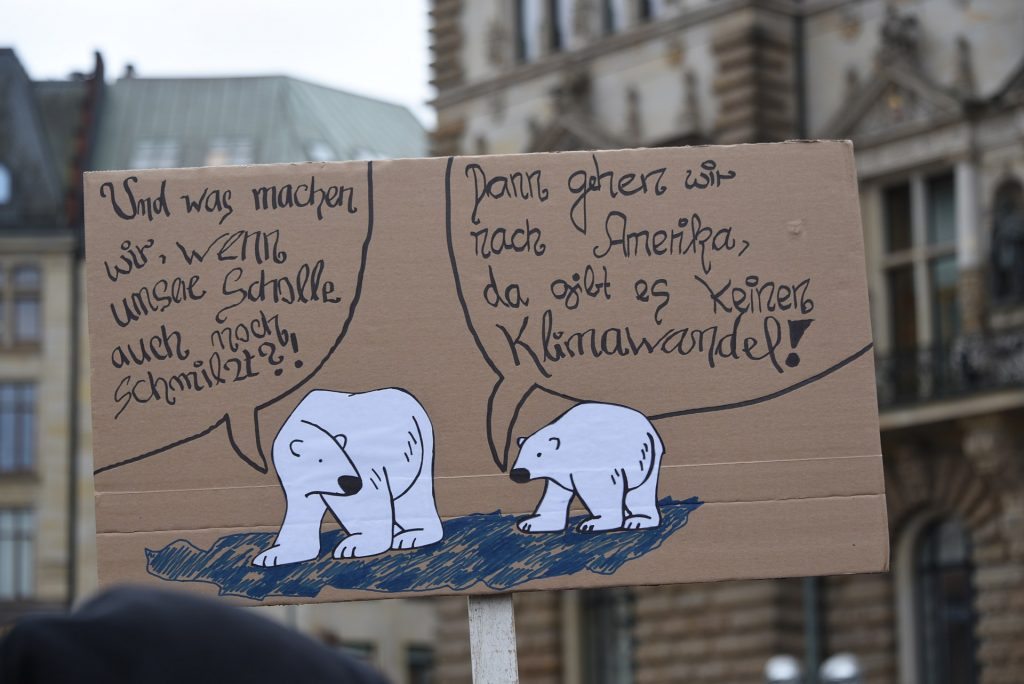 Und was machen
wir, wenn
unsere Scholle
auch noch
schmilzt?!
Dann gehen wir
nach Amerika,
da gibt es keinen
Klimawandel!